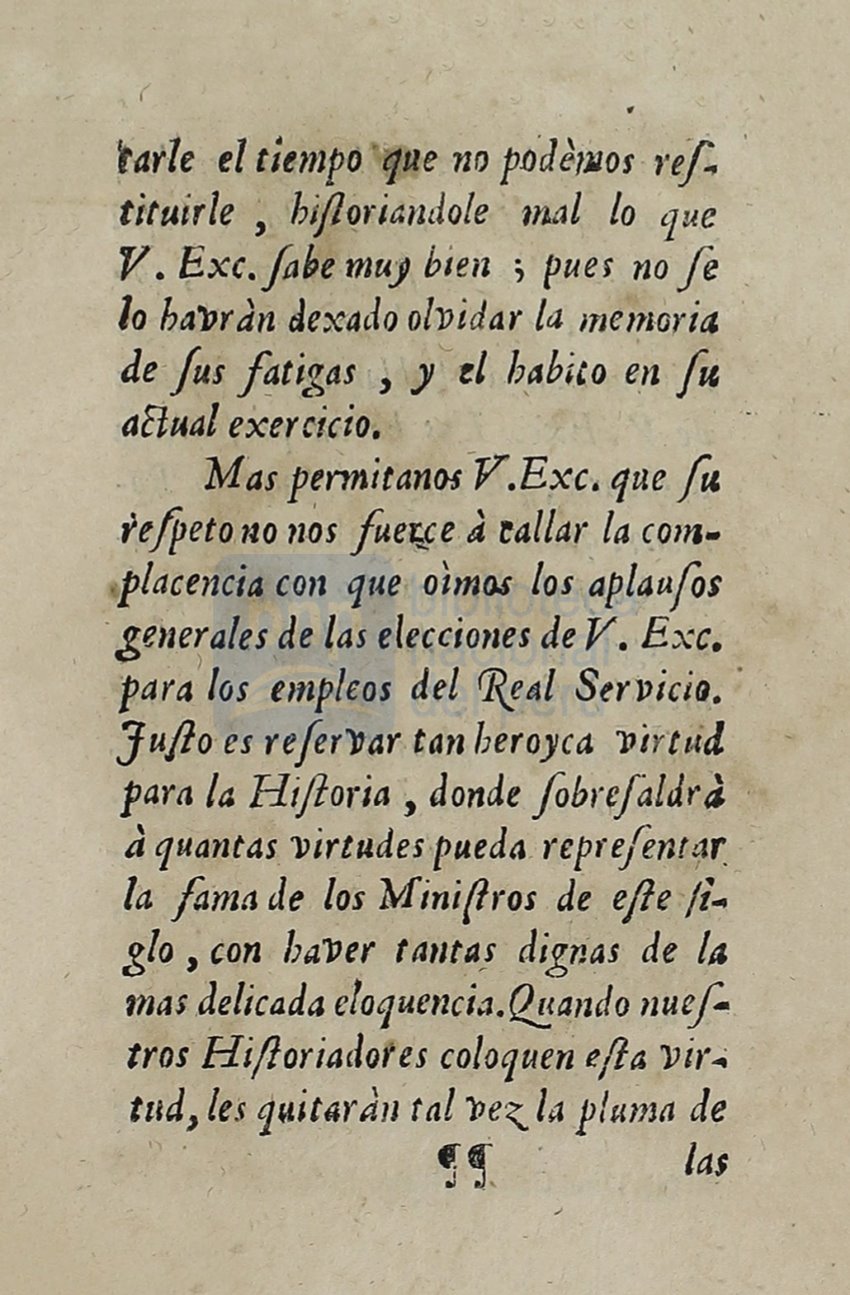 tarle el tiempo que no podèmos reſ-
tituirle , hiſtoriandole mal lo que
V. Exc. ſabe muy bien ; pues no ſe
lo havràn dexado olvidar la memoria
de ſus fatigas , y el habito en ſu
actual exercicio.
Mas permitanos V.Exc. que ſu
reſpeto no nos fuerce à callar la com-
placencia con que oìmos los aplauſos
generales de las elecciones de V. Exc.
para los empleos del Real Servicio.
Juſto es reſervar tan heroyca virtud
para la Hiſtoria , donde ſobreſaldrà
à quantas virtudes pueda repreſentar
la fama de los Miniſtros de eſte ſi-
glo , con haver tantas dignas de la
mas delicada eloquencia.Quando nueſ-
tros Hiſtoriadores coloquen eſta vir-
tud, les quitaràn tal vez la pluma de
¶¶ las